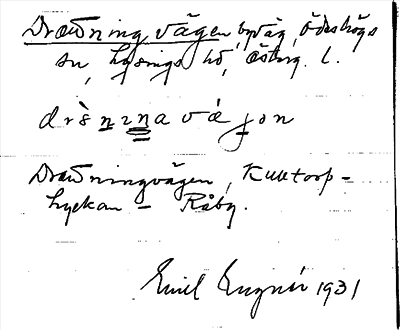 Drottningvägen, byväg, Ödeshögs
sn, Lysings hd, Österg. l.
drò̀nına vá jon
Drottningvägen, Kultorp-
lyckan - Råby.
Emil Lugnér 1931